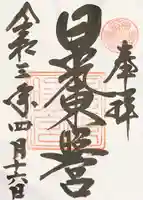 奉拝
日光東照宮
令和三年四月十六日